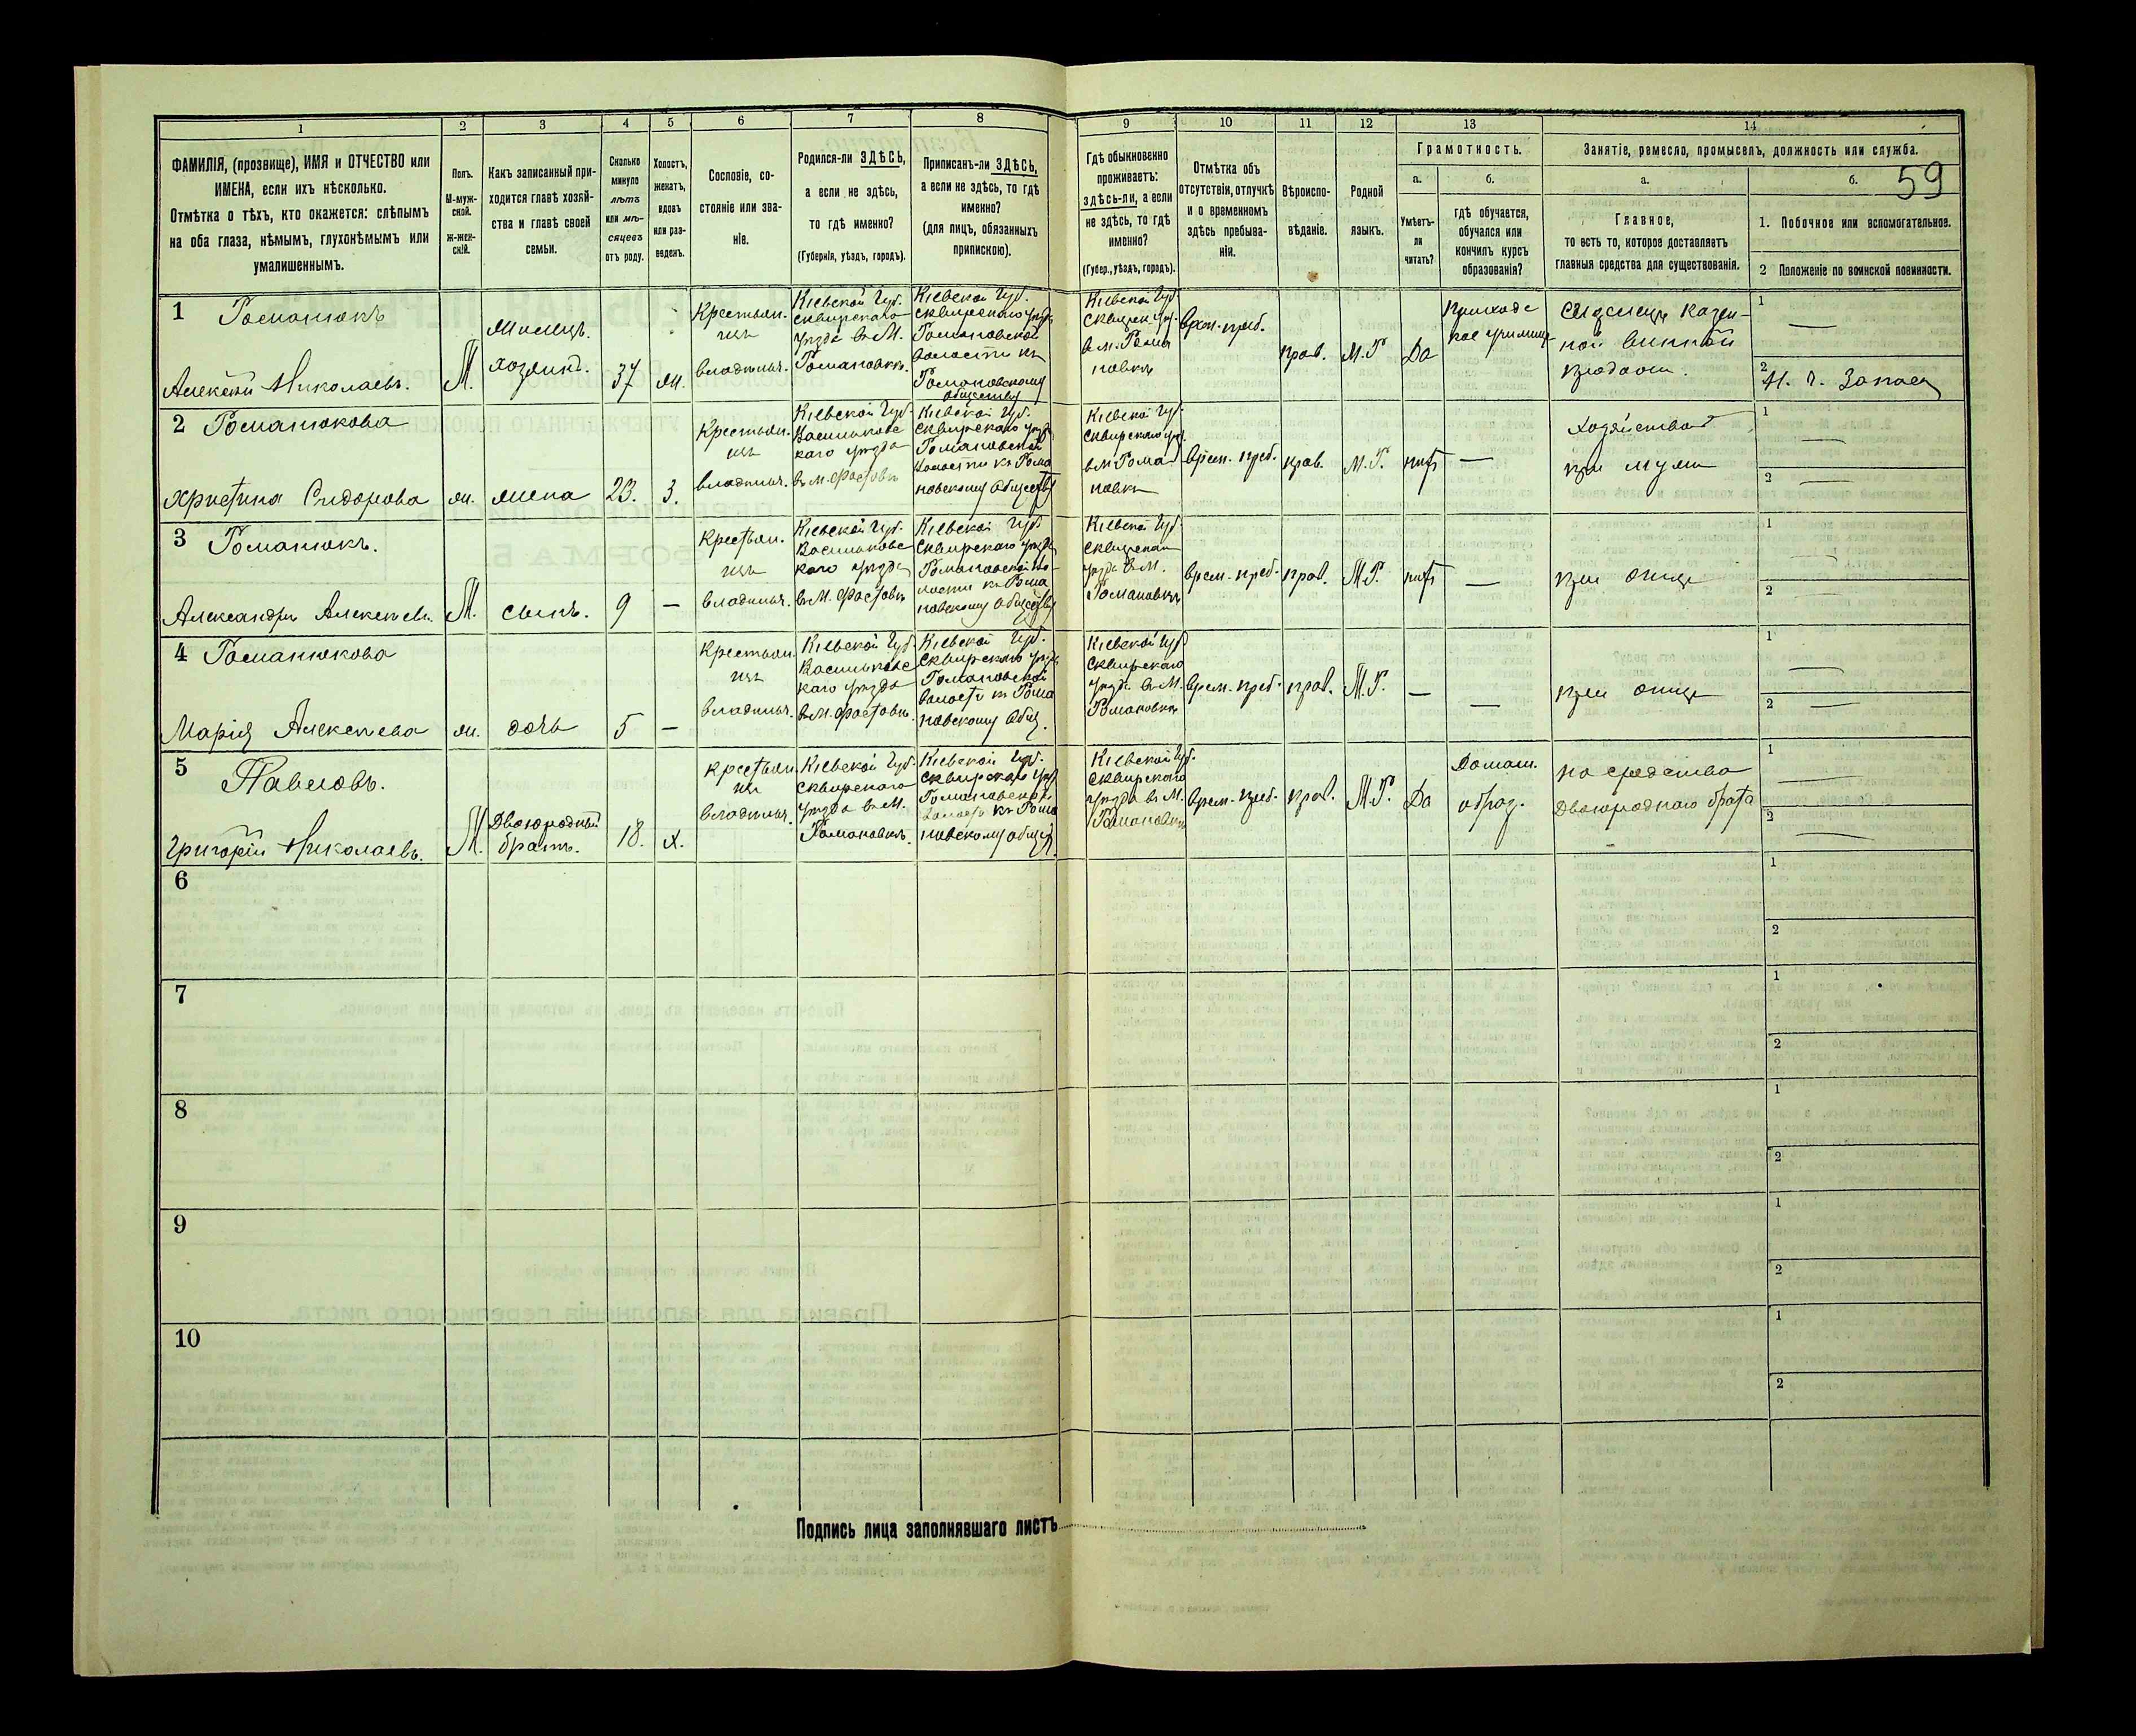 59
1 2 3 4 5 6 7 8 9 10 11 12 13 14
ФАМИЛІЯ, (прозвище), ИМЯ и ОТЧЕСТВО или
ИМЕНА, если ихъ нѣсколько.
Отмѣтка о тѣхъ, кто окажется: слѣпымъ
на оба глаза, нѣмымъ, глухонѣмымъ или
умалишеннымъ.
Полъ.
М-муж-
ской.
Ж-жен-
скій.
Какъ записанный при-
ходится главѣ хозяй-
ства и главѣ своей
семьи.
Сколько
минуло
лѣтъ
или мѣ-
сяцевъ
отъ роду.
Холостъ,
женатъ,
вдовъ
или раз-
веденъ.
Сословіе, со-
стояніе или зва-
ніе.
Родился-ли ЗДѢСЬ,
а если не здѣсь,
то гдѣ именно?
(Губернія, уѣздъ, городъ).
Приписанъ-ли ЗДѢСЬ,
а если не здѣсь, то гдѣ
именно?
(для лицъ, обязанныхъ
припискою).
Гдѣ обыкновенно
проживаетъ:
здѣсь-ли, а если
не здѣсь, то гдѣ
именно?
(Губер., уѣздъ, городъ).
Отмѣтка объ
отсутствіи, отлучкѣ
и о временномъ
здѣсь пребыва-
ніи.
Вѣроиспо-
вѣданіе.
Родной
языкъ.
Грамотность.
а.
Умѣетъ-
ли
читать?
б.
гдѣ обучается,
обучался или
кончилъ курсъ
образованія?
Занятіе, ремесло, промыселъ, должность или служба.
а.
Главное,
то есть то, которое доставляетъ
главныя средства для существованія.
б.
1. Побочное или вспомогательное.
2 Положеніе по воинской повинности.
1 Романюкъ
Алексѣй Николаевъ.
М.
хозяинъ.
37
ж.
Крестьян-
инъ
владѣльч.
Кіевской Губ.
Сквирскаго
уѣзда въ М.
Романовкѣ.
Кіевской Губ.
Сквирскаго уѣзда
Романовской
волости къ
Романовскому
обществу
Кіевской Губ.
Сквирск. уѣз.
в м. Рома
новкѣ
врем. преб.
прав.
М.Р.
Да
Приходс
кое училище
Сиделецъ казен-
ной винной
продажи.
1 —
2
2 Романюкова
Христина Сидорова
ж.
жена
23.
з.
Крестьян.
изъ
владѣльч.
Кіевской Губ.
Васильковс
каго уѣзда
въ М. Фастовѣ
Кіевской Губ.
Сквирскаго уѣзда
Романовской
волости къ Рома
новскому обществу
Кіевской Губ.
Сквирскаго уѣз.
в м Рома
новкѣ
врем. преб.
прав.
М.Р.
нѣтъ
—
Хозяйством
при мужѣ
1 —
2 —
3 Романюкъ.
Александръ Алексѣевъ.
М.
сынъ.
9
—
Крестьян.
изъ
владѣльч.
Кіевской Губ.
Васильковс
каго уѣзда
въ М. Фастовѣ
Кіевской Губ.
Сквирскаго уѣзда
Романовской во-
лости къ Рома
новскому обществу
Кіевской Губ.
Сквирскаго
уѣзда въ М.
Романовкѣ
врем. преб.
прав.
М.Р.
нѣтъ
—
при отцѣ
1 —
2 —
4 Романюкова
Марія Алексѣева
ж.
дочь
5
—
Крестьян.
изъ
владѣльч.
Кіевской Губ.
Васильковс
каго уѣзда
въ М. Фастовѣ.
Кіевской Губ.
Сквирскаго уѣзда
Романовской
волости къ Рома
новскому общ.
Кіевской Губ.
Сквирскаго
уѣзда въ М.
Романовкѣ
врем. преб.
прав.
М.Р.
—
—
при отцѣ
1 —
2 —
5 Павловъ.
Григорій Николаевъ.
М.
Двоюродный
братъ.
18.
х.
Крестьян.
изъ
владѣльч.
Кіевской Губ.
Сквирскаго
уѣзда въ М.
Романовкѣ.
Кіевской Губ.
Сквирскаго уѣз
Романовской
волости къ Рома
новскому общес.
Кіевской Губ.
Сквирскаго
уѣзда въ М.
Романовкѣ
врем. преб.
прав.
М.Р.
Да
Домаш.
образ.
на средства
двоюроднаго брата
1 —
2 —
6
1
2
7
1
2
8
1
2
9
1
2
10
1
2
Подпись лица заполнявшаго листъ